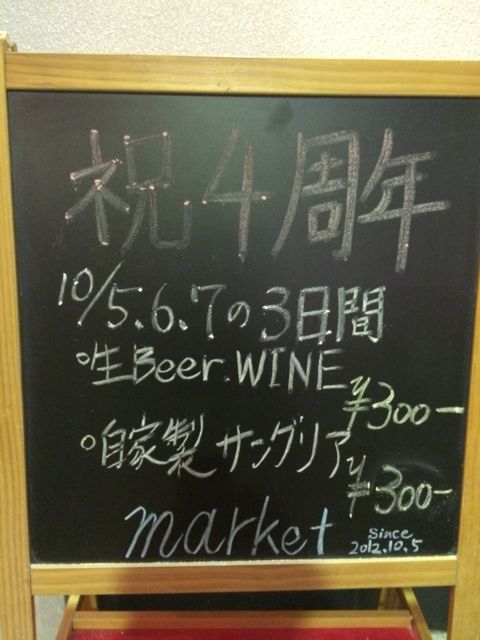 祝4周年
10/5.6.7の3日間
○生Beer.WINE
¥300-
○自家製サングリア
¥300-
market
Since
2012.10.5